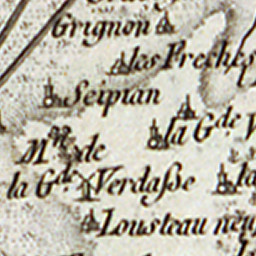 Grignon
les Preches
Seipian
la Gde
Mon de
la Gde Verdasse
la
Lousteau neuf